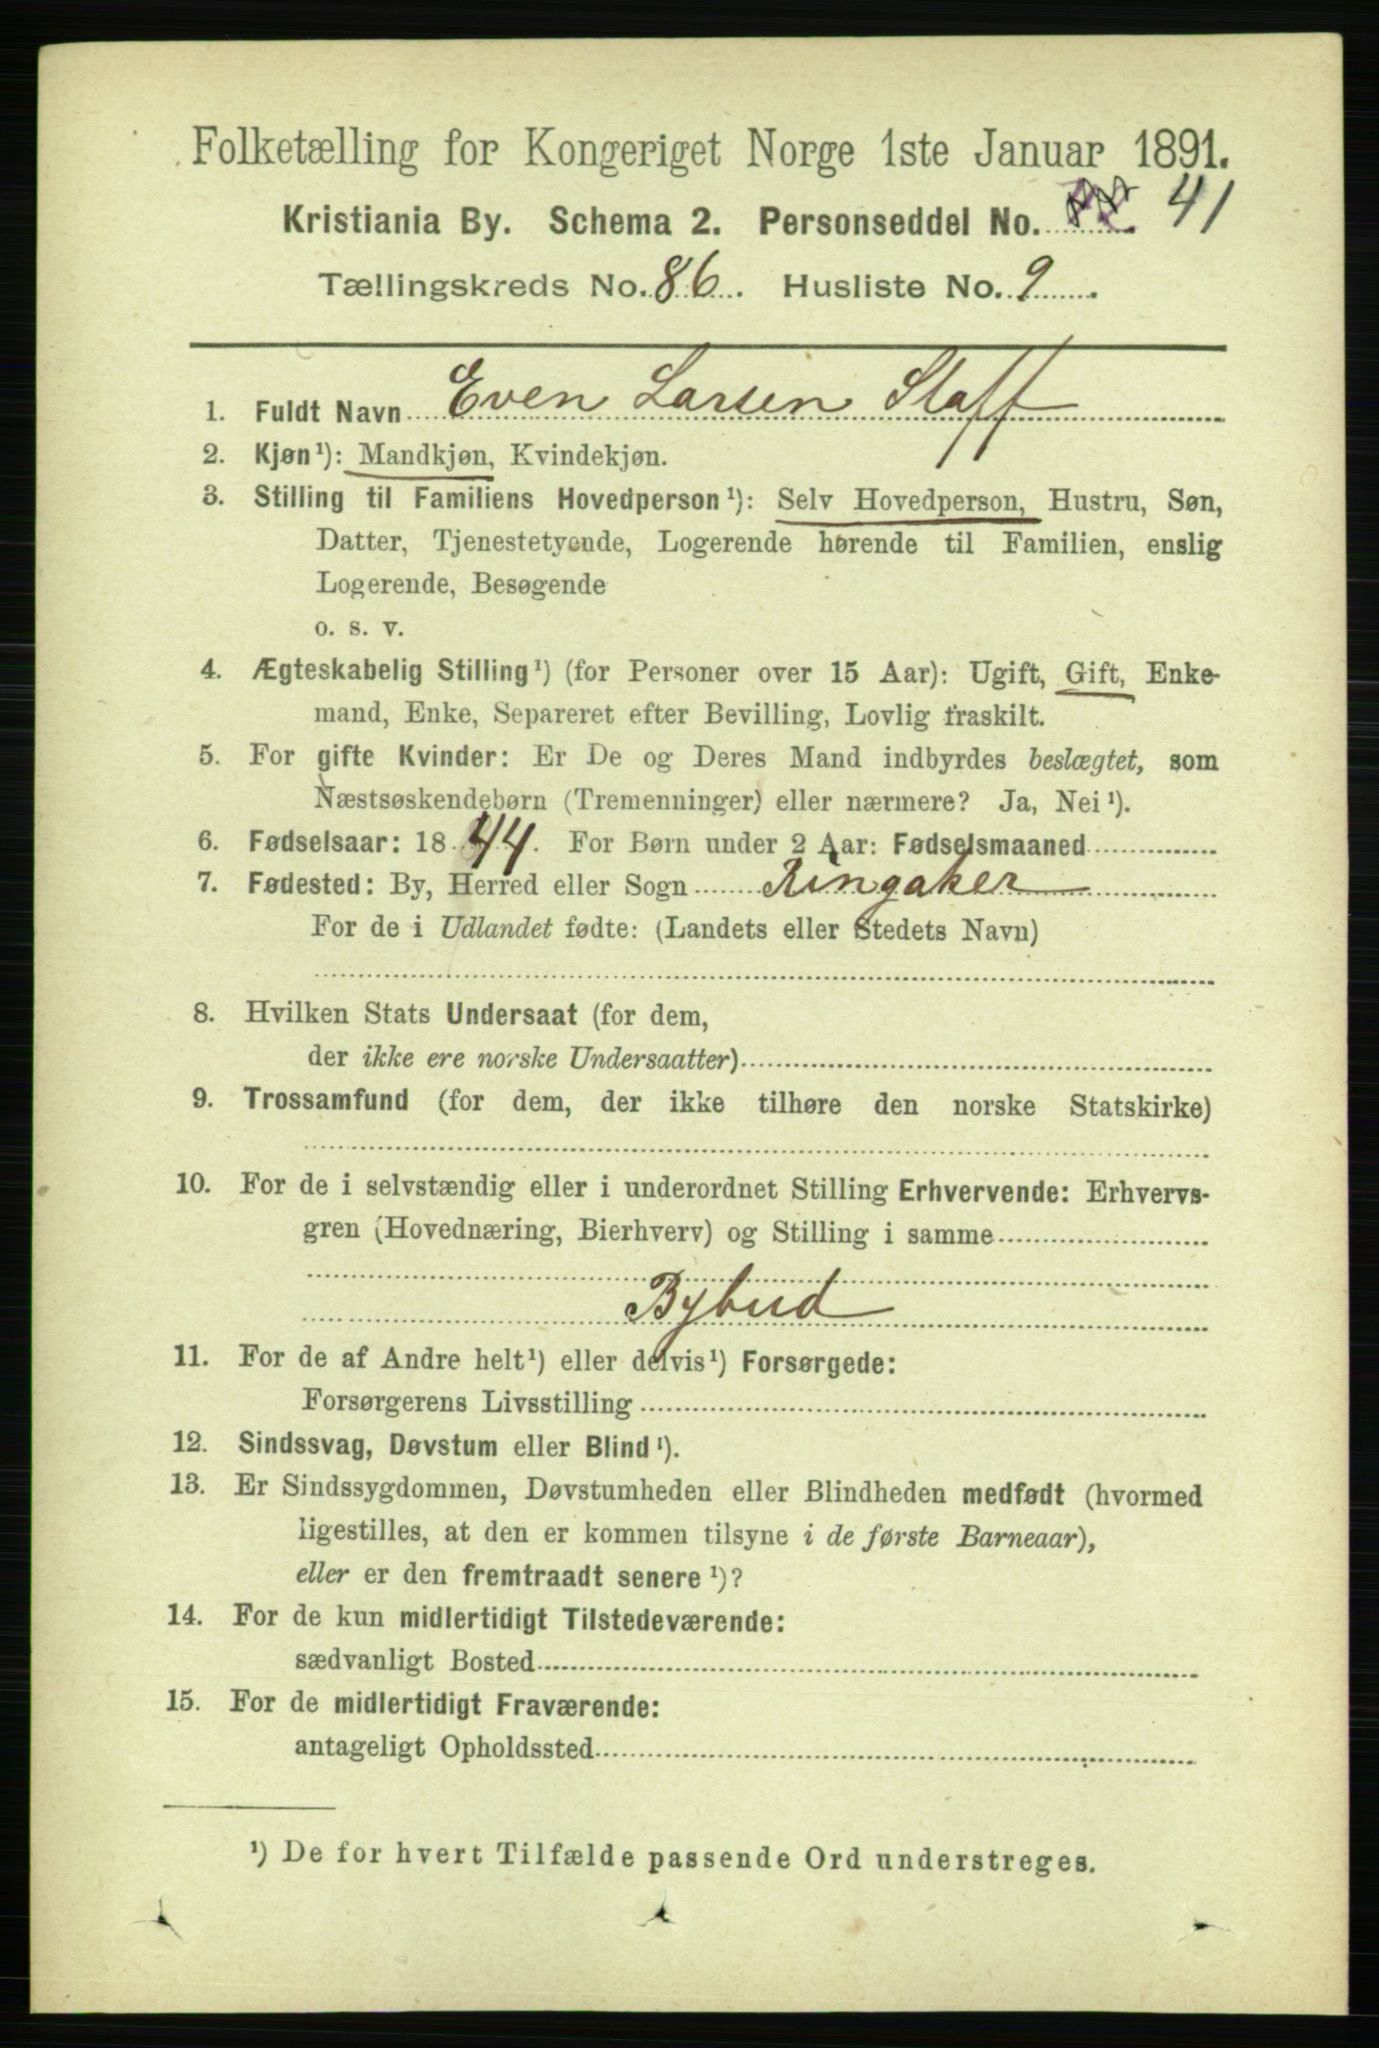 Folketælling for Kongeriget Norge 1ste Januar 1891.
Kristiania By. Schema 2. Personseddel No. 41
Tællingskreds No. 86. Husliste No. 9.
1. Fuldt Navn Even Larsen Staff
2. Kjøn¹): Mandkjøn, Kvindekjøn.
3. Stilling til Familiens Hovedperson¹): Selv Hovedperson, Hustru, Søn,
Datter, Tjenestetyende, Logerende hørende til Familien, enslig
Logerende, Besøgende
o. s. v.
4. Ægteskabelig Stilling¹) (for Personer over 15 Aar): Ugift, Gift, Enke-
mand, Enke, Separeret efter Bevilling, Lovlig fraskilt.
5. For gifte Kvinder: Er De og Deres Mand indbyrdes beslægtet, som
Næstsøskendebørn (Tremenninger) eller nærmere? Ja, Nei¹).
6. Fødselsaar: 1844. For Børn under 2 Aar: Fødselsmaaned
7. Fødested: By, Herred eller Sogn Ringaker
For de i Udlandet fødte: (Landets eller Stedets Navn)
8. Hvilken Stats Undersaat (for dem,
der ikke ere norske Undersaatter)
9. Trossamfund (for dem, der ikke tilhøre den norske Statskirke)
10. For de i selvstændig eller i underordnet Stilling Erhvervende: Erhvervs-
gren (Hovednæring, Bierhverv) og Stilling i samme
Bybud
11. For de af Andre helt¹) eller delvis¹) Forsørgede:
Forsørgerens Livsstilling
12. Sindssvag, Døvstum eller Blind¹).
13. Er Sindssygdommen, Døvstumheden eller Blindheden medfødt (hvormed
ligestilles, at den er kommen tilsyne i de første Barneaar),
eller er den fremtraadt senere¹)?
14. For de kun midlertidigt Tilstedeværende:
sædvanligt Bosted
15. For de midlertidigt Fraværende:
antageligt Opholdssted
¹) De for hvert Tilfælde passende Ord understreges.